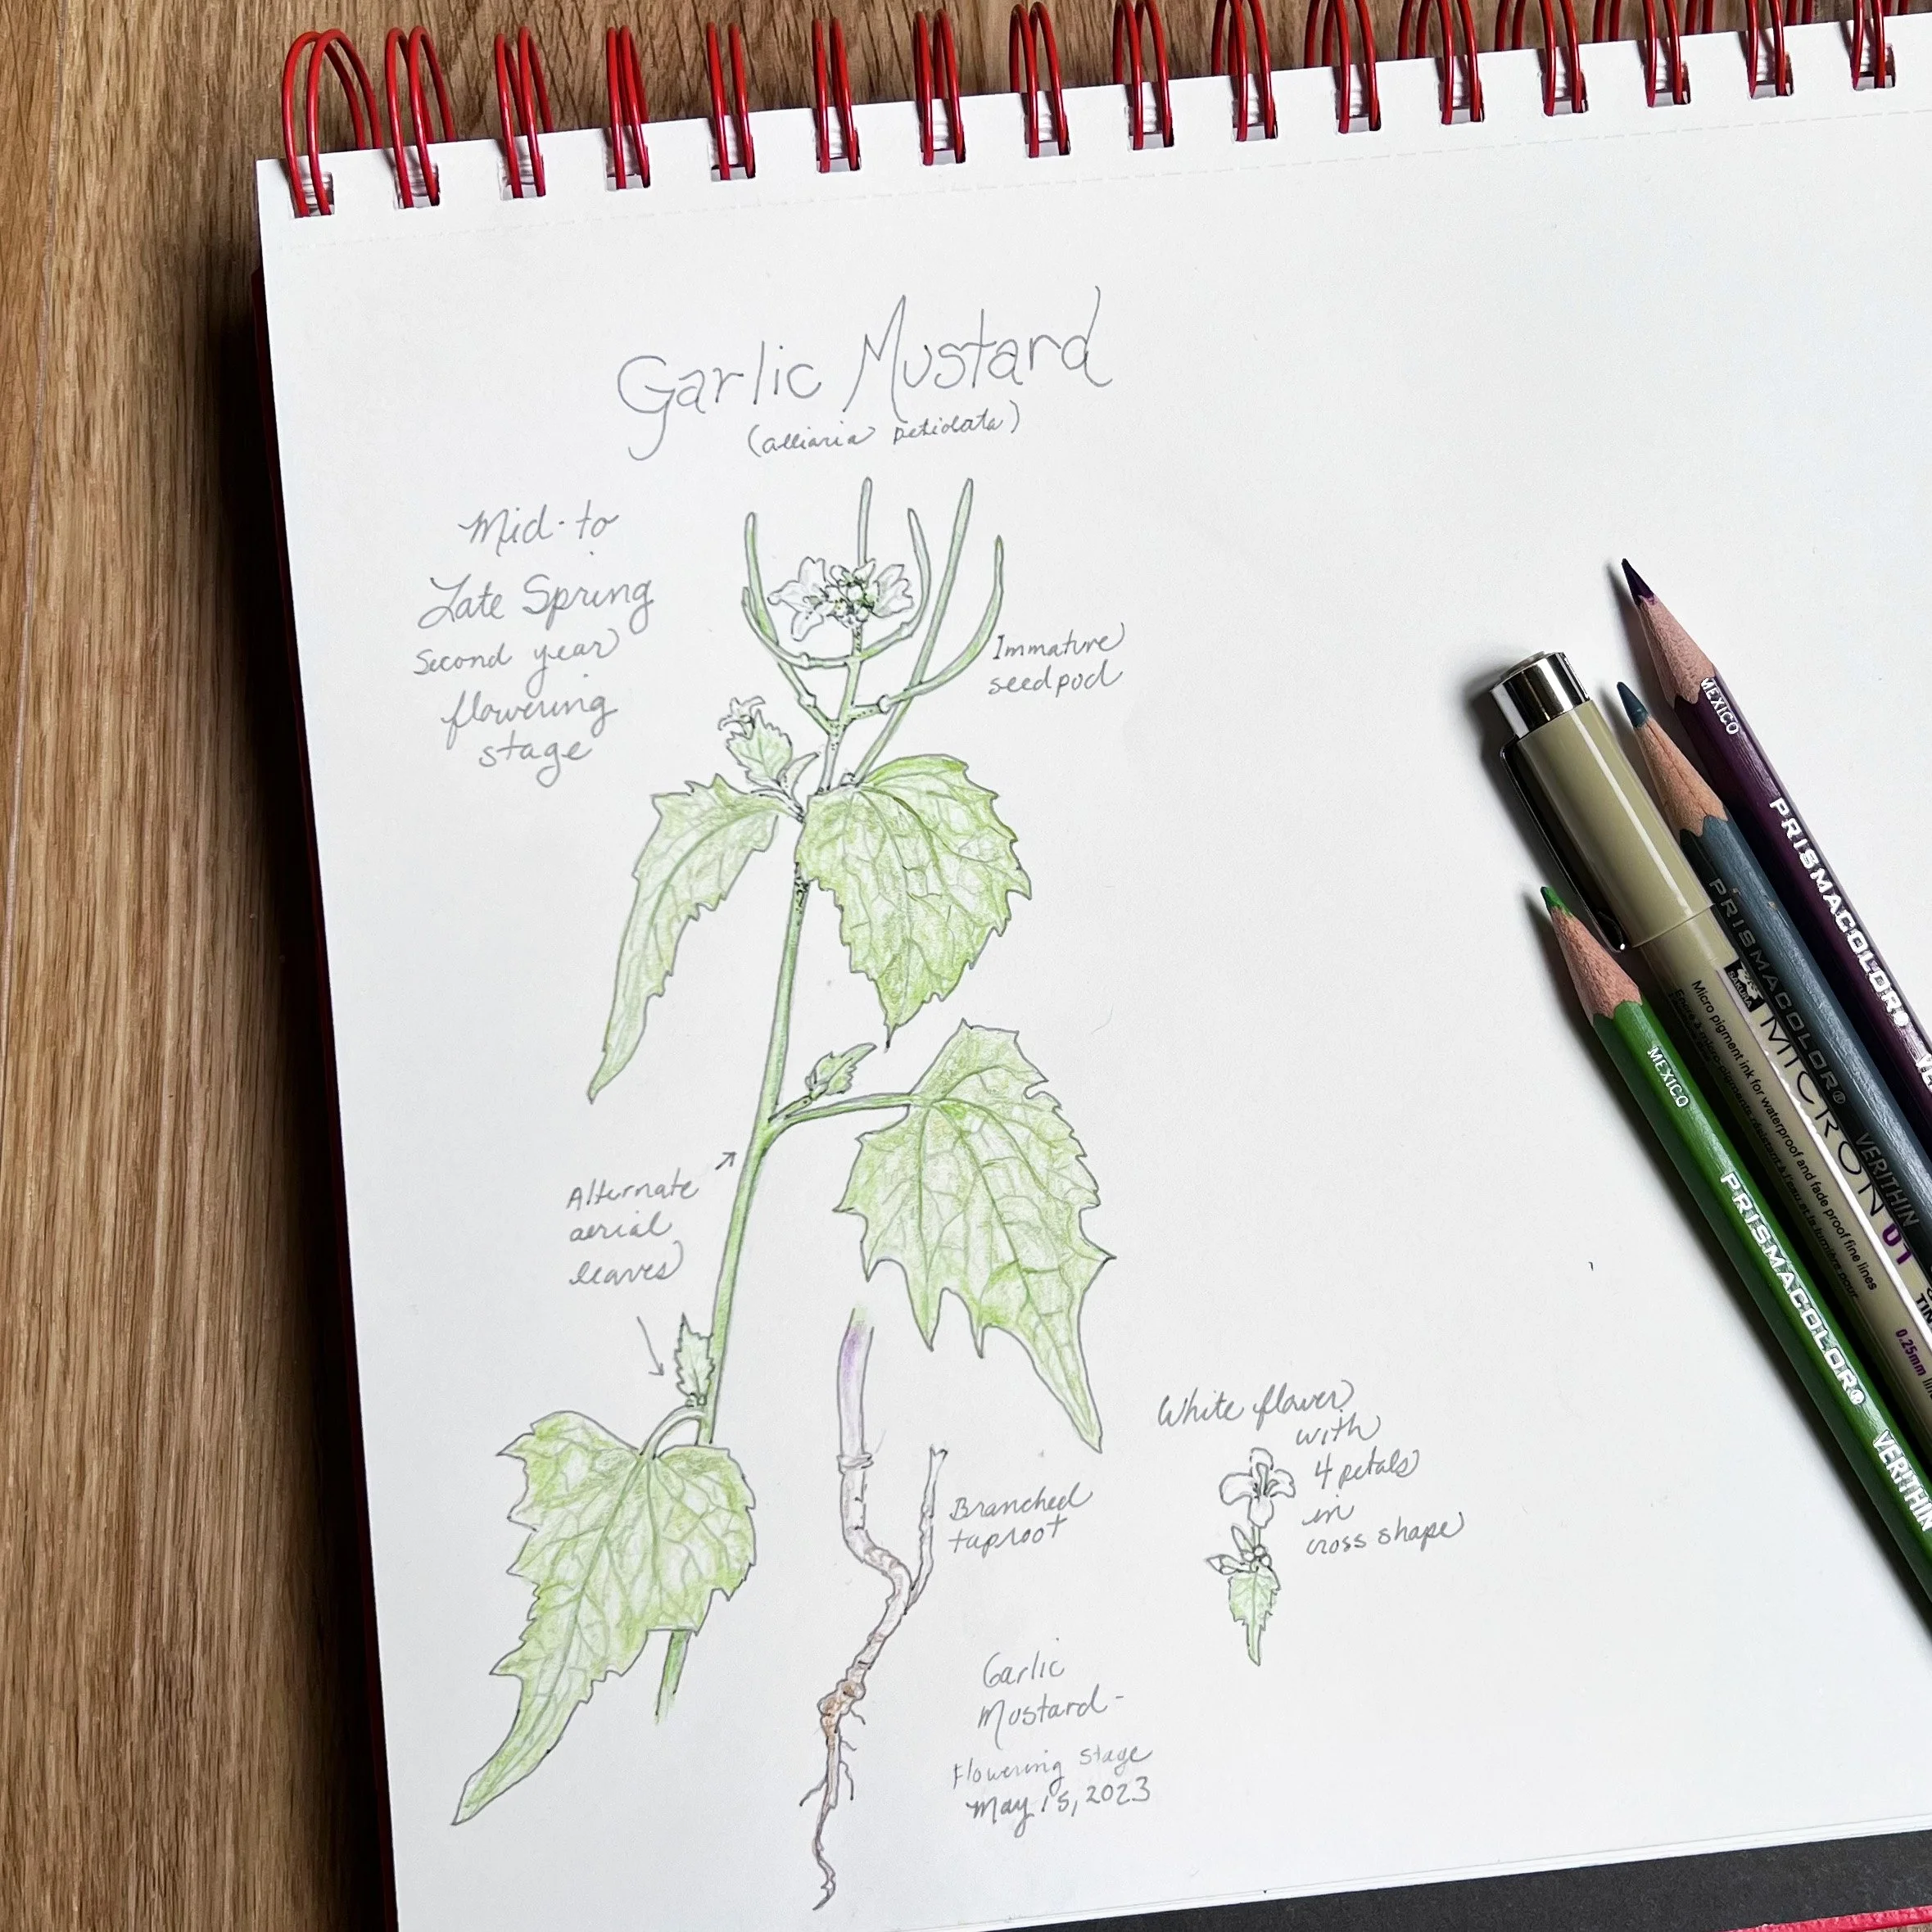 Garlic Mustard
(alliaria petiolata)
Mid-to
Late Spring
Second year
flowering
stage
Immature
seedpod
Alternate
aerial
leaves
Branched
taproot
White flower
with
4 petals
in
cross shape
Garlic
Mustard-
Flowering stage
May 15, 2023
MEXICO PRISMACOLOR® VERITHIN
PRISMACOLOR® VERITHIN
SAKURA
MICRON 01
Micro pigment ink for waterproof and fade proof fine lines
0.25mm
MEXICO PRISMACOLOR®